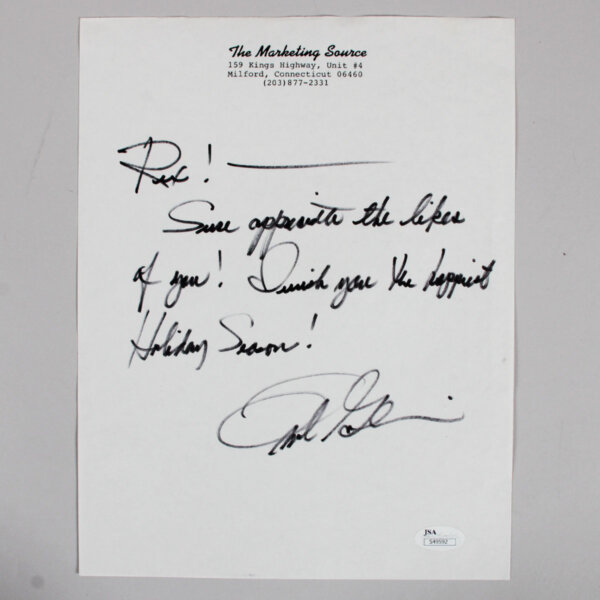 The Marketing Source
159 Kings Highway, Unit #4
Milford, Connecticut 06460
(203)877-2331
Rex!
Sure appreciate the likes
of you! I wish you the happiest
Holiday Season!
JSA
S49592